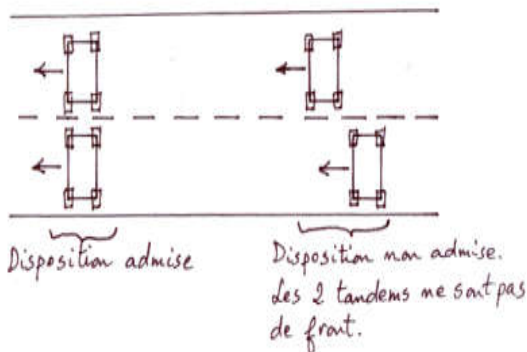 Disposition admise
Disposition non admise.
Les 2 tandems ne sont pas
de front.